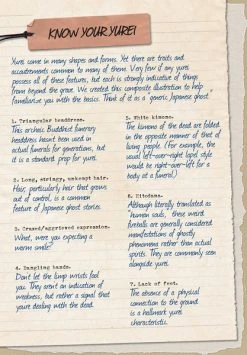 KNOW YOUR YUREI
Yurei come in many shapes and forms. Yet there are traits and
accoutrements common to many of them. Very few if any yurei
possess all of these features, but each is strongly indicative of things
from beyond the grave. We created this composite illustration to help
familiarize you with the basics. Think of it as a generic Japanese ghost.
1. Triangular headdress.
This archaic Buddhist funerary
headdress hasn't been used in
actual funerals for generations, but
it is a standard prop for yurei.
2. Long, stringy, unkempt hair.
Hair, particularly hair that grows
out of control, is a common
feature of Japanese ghost stories.
3. Crazed/aggrieved expression.
What, were you expecting a
warm smile?
4. Dangling hands.
Don't let the limp wrists fool
you. They aren't an indication of
weakness, but rather a signal that
you're dealing with the dead.
5. White kimono.
The kimono of the dead are folded
in the opposite manner of that of
living people. (For example, the
usual left-over-right lapel style
would be right-over-left for a
body at a funeral.)
6. Hitodama.
Although literally translated as
"human souls," these weird
fireballs are generally considered
manifestations of ghostly
phenomena rather than actual
spirits. They are commonly seen
alongside yurei.
7. Lack of feet.
The absence of a physical
connection to the ground
is a hallmark yurei
characteristic.